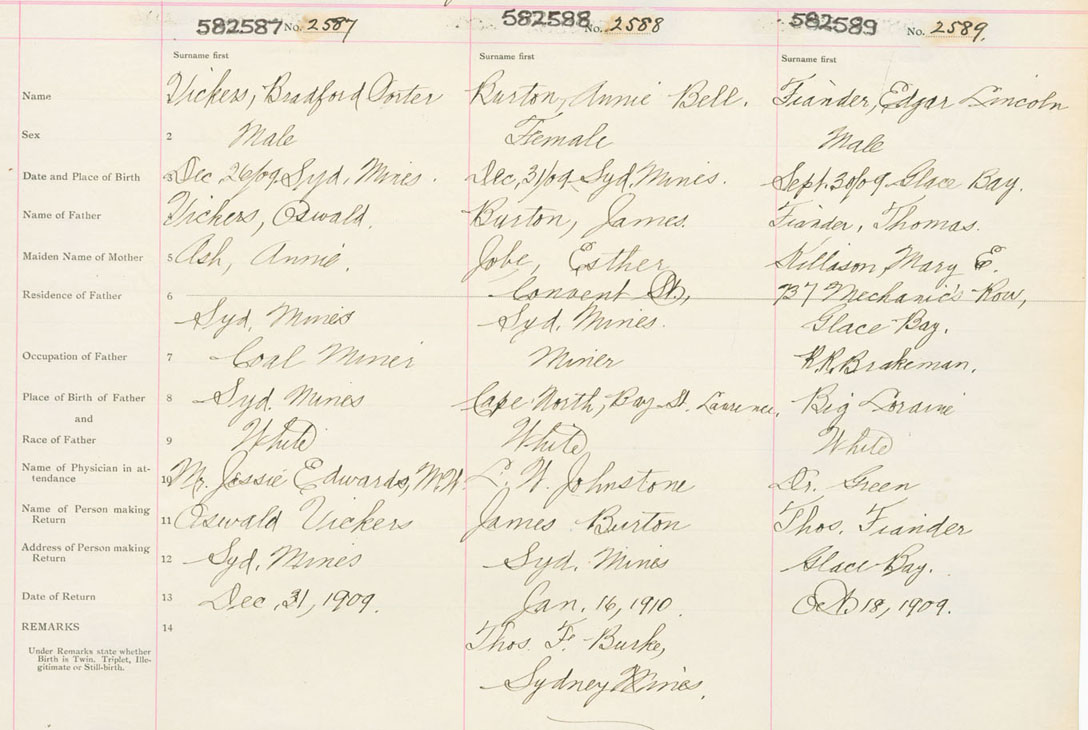 582587 No. 2587 582588 No. 2588 582589 No. 2589.
Surname first Surname first Surname first
Name Vickers, Bradford Porter Burton, Annie Bell. Fiander, Edgar Lincoln
Sex 2 Male Female Male
Date and Place of Birth 3 Dec, 26/09 Syd, Mines. Dec, 31/09 Syd, Mines. Sept. 30/09 Glace Bay.
Name of Father Vickers, Oswald. Burton, James. Fiander, Thomas.
Maiden Name of Mother 5 Ash, Annie. Jobe, Esther Mary E.
Residence of Father 6 Convent St, 737 Mechanic's Row,
Syd, Mines Syd. Mines. Glace Bay.
Occupation of Father 7 Coal Miner Miner R.R. Brakeman.
Place of Birth of Father 8 Syd. Mines Cape North, Bay St. Lawrence. Big Loraine
and
Race of Father 9 White White White
Name of Physician in at-
tendance 10 Jessie Edwards, L. W. Johnstone Dr. Green
Name of Person making
Return 11 Oswald Vickers James Burton Thos. Fiander
Address of Person making
Return 12 Syd. Mines Syd. Mines Glace Bay.
Date of Return 13 Dec, 31, 1909. Jan. 16, 1910. Oct. 18, 1909.
REMARKS 14 Thos. F. Burke,
Under Remarks state whether
Birth is Twin. Triplet, Ille-
gitimate or Still-birth.
Sydney Mines.